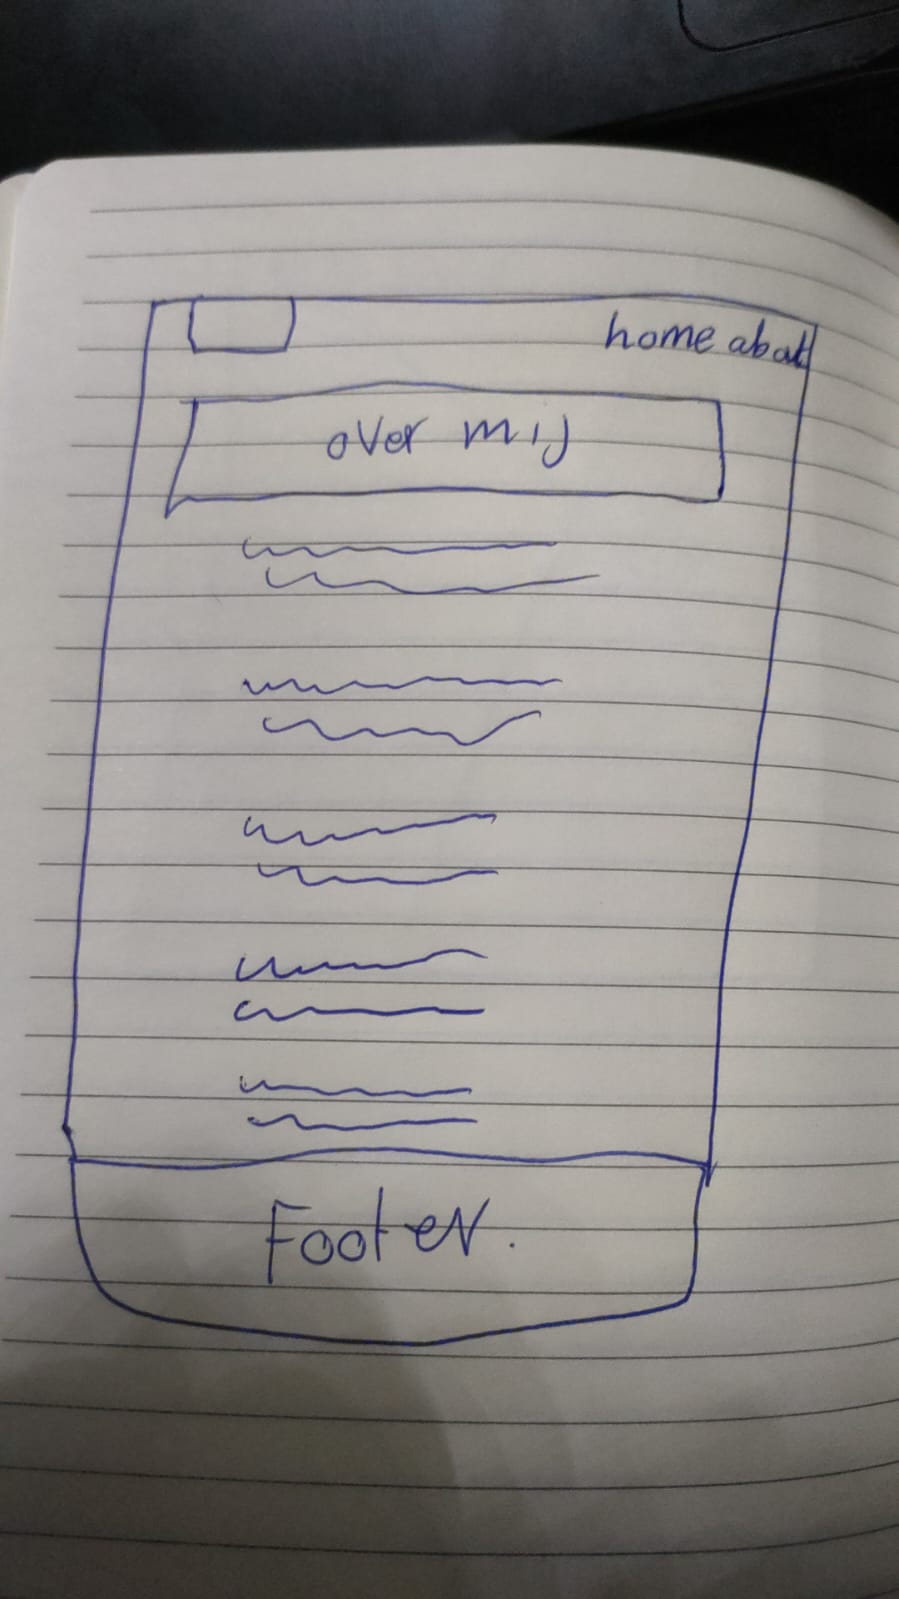 home abat
over mij
Footer.